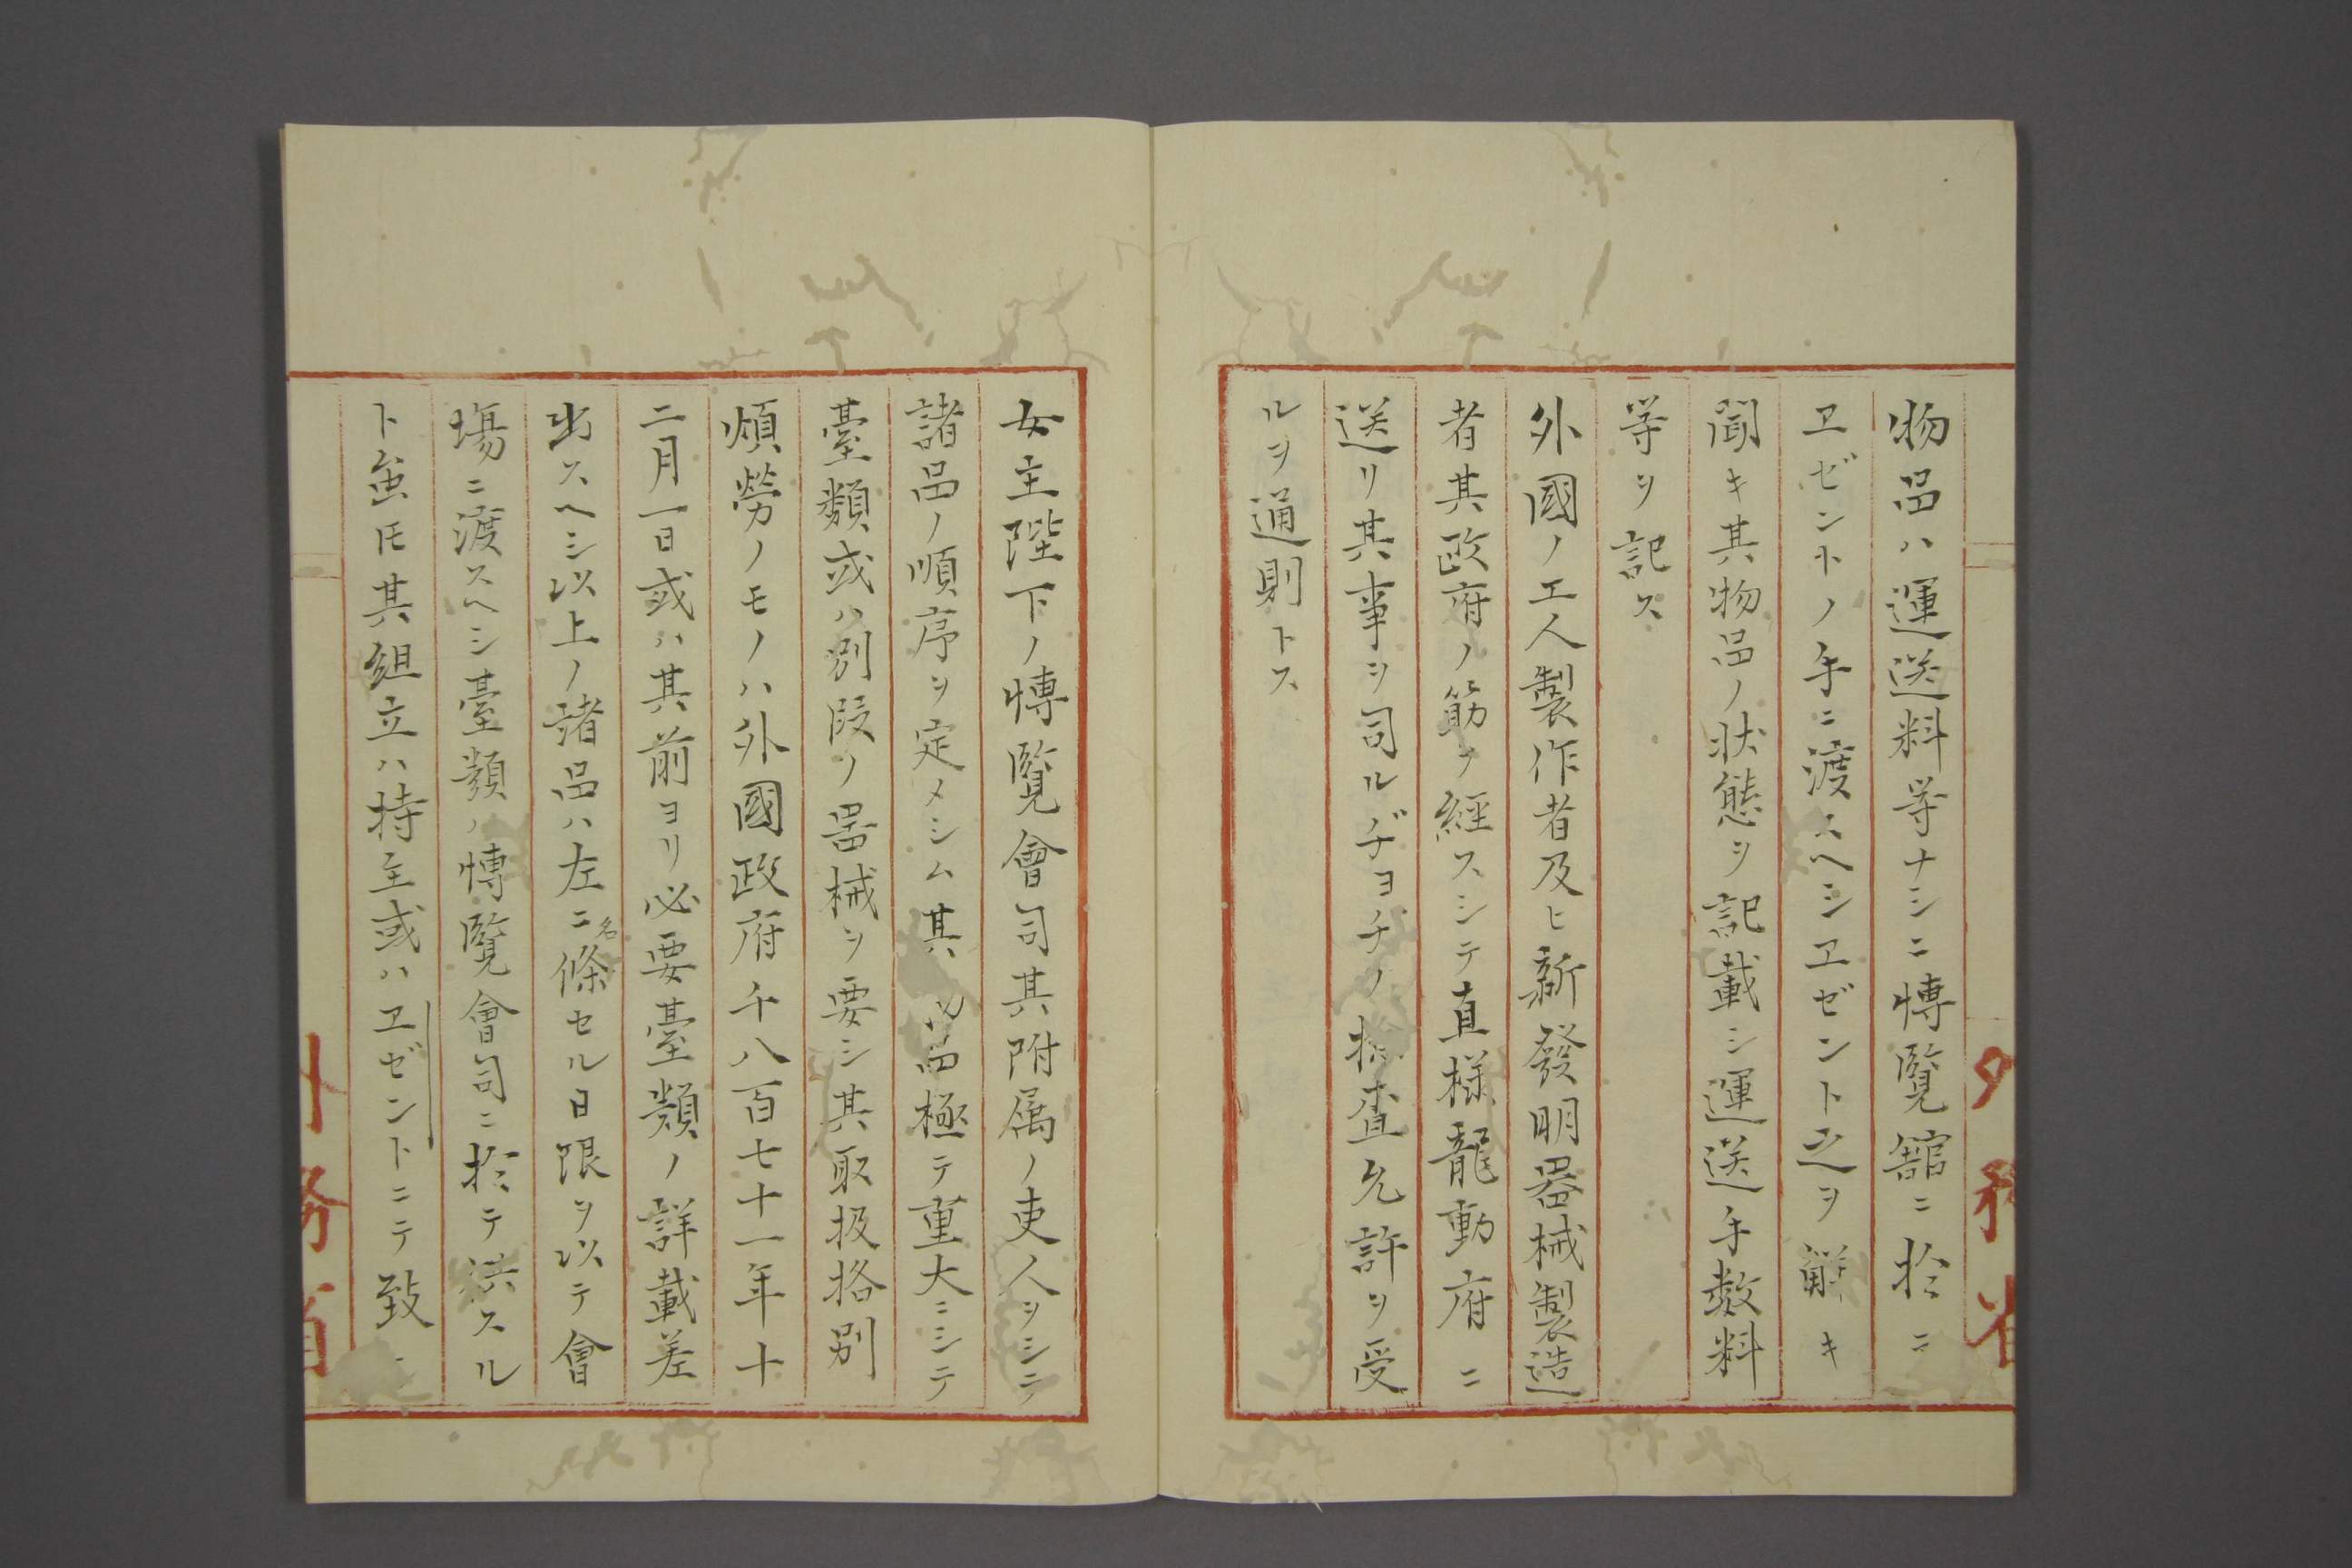 物品ハ運送料等ナシニ博覧舘ニ於ニ
ヱゼントノ手ニ渡スヘシヱゼント之ヲ解キ
聞キ其物品ノ状態ヲ記載シ運送手数料
等ヲ記ス
外國ノ工人製作者及ヒ新發明器械製造
者其政府ノ筋ヲ經スシテ直樣龍動府ニ
送リ其事ヲ司ルヂヨヂノ査允許ヲ受
ルヲ通則トス
女主陛下ノ博覧會司其附属ノ吏人ヲシテ
諸品ノ順序ヲ定メシム其品極テ重大ニシテ
臺類或ハ別段ノ器械ヲ要シ其取扱格別
煩勞ノモノハ外國政府千八百七十一年十
二月一日或ハ其前ヨリ必要臺類ノ詳載差
出スヘシ以上ノ諸品ハ左ニ名條セル日限ヲ以テ會
塲ニ渡スヘシ臺類ノ博覧會司ニ於テ供スル
ト雖トモ其組立ハ持主或ハヱゼントニテ致
外務省
外務省